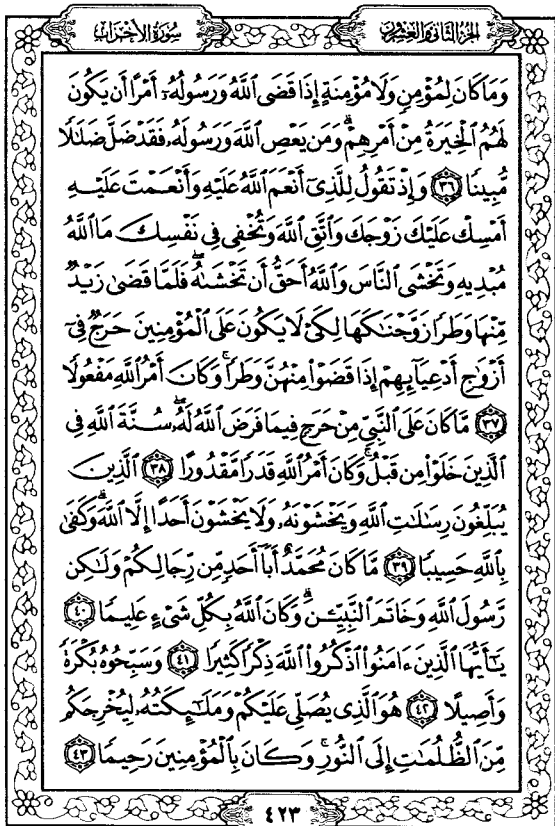 الجزء الثاني والعشرون
سُورَةُ الأَحْزَابِ
وَمَا كَانَ لِمُؤْمِنٍ وَلَا مُؤْمِنَةٍ إِذَا قَضَى ٱللَّهُ وَرَسُولُهُۥٓ أَمْرًا أَن يَكُونَ
لَهُمُ ٱلْخِيَرَةُ مِنْ أَمْرِهِمْۗ وَمَن يَعْصِ ٱللَّهَ وَرَسُولَهُۥ فَقَدْ ضَلَّ ضَلَٰلًا
مُّبِينًا ٣٦ وَإِذْ تَقُولُ لِلَّذِىٓ أَنْعَمَ ٱللَّهُ عَلَيْهِ وَأَنْعَمْتَ عَلَيْهِ
أَمْسِكْ عَلَيْكَ زَوْجَكَ وَٱتَّقِ ٱللَّهَ وَتُخْفِى فِى نَفْسِكَ مَا ٱللَّهُ
مُبْدِيهِ وَتَخْشَى ٱلنَّاسَ وَٱللَّهُ أَحَقُّ أَن تَخْشَىٰهُۖ فَلَمَّا قَضَىٰ زَيْدٌ
مِّنْهَا وَطَرًا زَوَّجْنَٰكَهَا لِكَىْ لَا يَكُونَ عَلَى ٱلْمُؤْمِنِينَ حَرَجٌ فِىٓ
أَزْوَٰجِ أَدْعِيَآئِهِمْ إِذَا قَضَوْا۟ مِنْهُنَّ وَطَرًاۚ وَكَانَ أَمْرُ ٱللَّهِ مَفْعُولًا
٣٧ مَّا كَانَ عَلَى ٱلنَّبِىِّ مِنْ حَرَجٍ فِيمَا فَرَضَ ٱللَّهُ لَهُۥۖ سُنَّةَ ٱللَّهِ فِى
ٱلَّذِينَ خَلَوْا۟ مِن قَبْلُۚ وَكَانَ أَمْرُ ٱللَّهِ قَدَرًا مَّقْدُورًا ٣٨ ٱلَّذِينَ
يُبَلِّغُونَ رِسَٰلَٰتِ ٱللَّهِ وَيَخْشَوْنَهُۥ وَلَا يَخْشَوْنَ أَحَدًا إِلَّا ٱللَّهَۗ وَكَفَىٰ
بِٱللَّهِ حَسِيبًا ٣٩ مَّا كَانَ مُحَمَّدٌ أَبَآ أَحَدٍ مِّن رِّجَالِكُمْ وَلَٰكِن
رَّسُولَ ٱللَّهِ وَخَاتَمَ ٱلنَّبِيِّۦنَۗ وَكَانَ ٱللَّهُ بِكُلِّ شَىْءٍ عَلِيمًا ٤٠
يَٰٓأَيُّهَا ٱلَّذِينَ ءَامَنُوا۟ ٱذْكُرُوا۟ ٱللَّهَ ذِكْرًا كَثِيرًا ٤١ وَسَبِّحُوهُ بُكْرَةً
وَأَصِيلًا ٤٢ هُوَ ٱلَّذِى يُصَلِّى عَلَيْكُمْ وَمَلَٰٓئِكَتُهُۥ لِيُخْرِجَكُم
مِّنَ ٱلظُّلُمَٰتِ إِلَى ٱلنُّورِۚ وَكَانَ بِٱلْمُؤْمِنِينَ رَحِيمًا ٤٣
٤٢٣